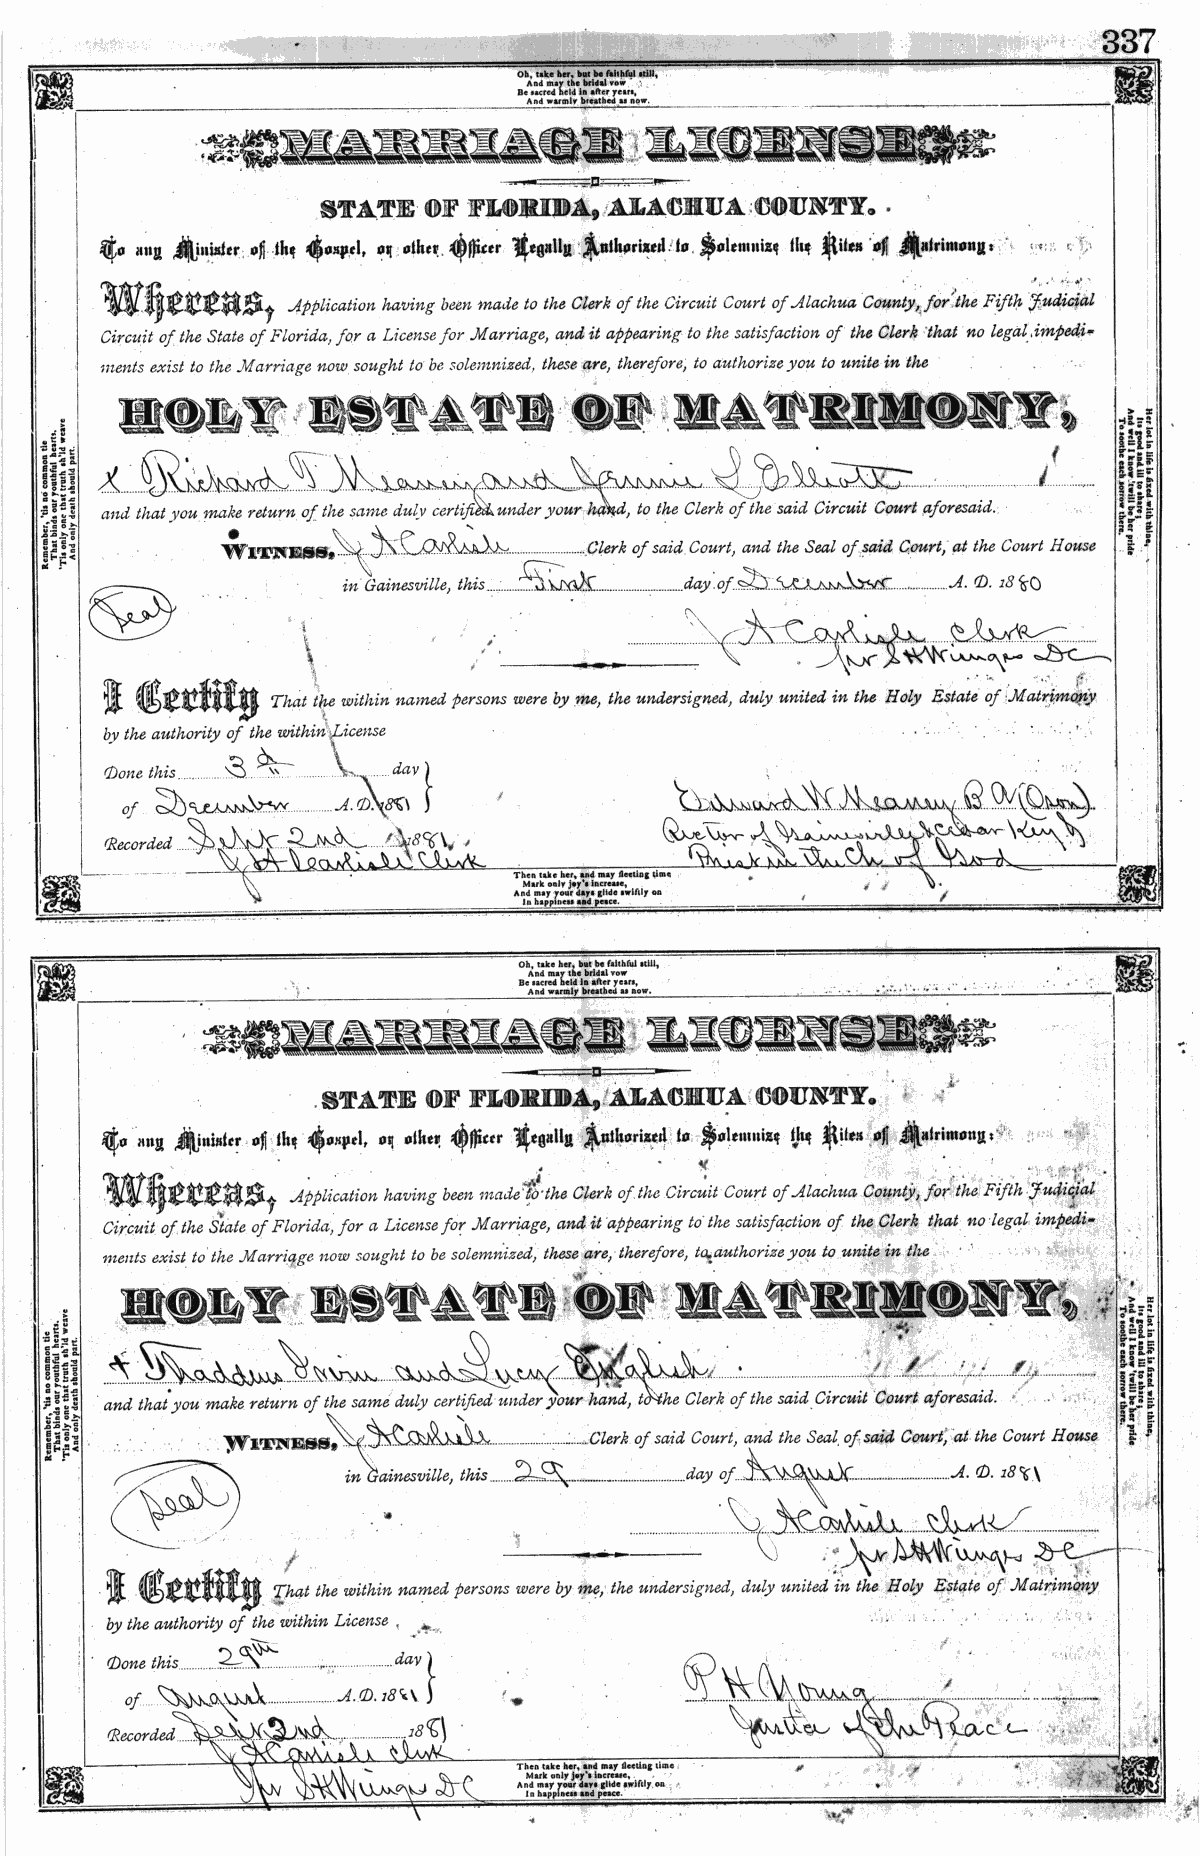 337
Oh, take her, but be faithful still,
And may the bridal vow
Be sacred held in after years,
And warmly breathed as now.
MARRIAGE LICENSE
STATE OF FLORIDA, ALACHUA COUNTY.
To any Minister of the Gospel, or other Officer Legally Authorized to Solemnize the Rites of Matrimony:
Whereas, Application having been made to the Clerk of the Circuit Court of Alachua County, for the Fifth Judicial
Circuit of the State of Florida, for a License for Marriage, and it appearing to the satisfaction of the Clerk that no legal impedi-
ments exist to the Marriage now sought to be solemnized, these are, therefore, to authorize you to unite in the
HOLY ESTATE OF MATRIMONY,
x Richard T Meaney and Jennie L Elliott
and that you make return of the same duly certified under your hand, to the Clerk of the said Circuit Court aforesaid.
WITNESS, J A Carlisle Clerk of said Court, and the Seal of said Court, at the Court House
in Gainesville, this First day of December A. D. 1880
Seal
J A Carlisle Clerk
pr S H Wienges DC
I Certify That the within named persons were by me, the undersigned, duly united in the Holy Estate of Matrimony
by the authority of the within License
Done this 3d day
of December A. D. 1881
Edward W Meaney B A (Oxon)
Recorded Sept 2nd 1881
Rector of Gainesville & Cedar Key &
J A Carlisle Clerk
Priest in the Ch of God
Then take her, and may fleeting time
Mark only joy's increase,
And may your days glide swiftly on
In happiness and peace.
Remember, 'tis no common tie
That binds our youthful hearts,
'Tis only one that truth sh'ld weave
And only death should part.
Her lot in life is fixed with thine,
Its good and ill to share;
And well I know 'twill be her pride
To soothe each sorrow there.
Oh, take her, but be faithful still,
And may the bridal vow
Be sacred held in after years,
And warmly breathed as now.
MARRIAGE LICENSE
STATE OF FLORIDA, ALACHUA COUNTY.
To any Minister of the Gospel, or other Officer Legally Authorized to Solemnize the Rites of Matrimony:
Whereas, Application having been made to the Clerk of the Circuit Court of Alachua County, for the Fifth Judicial
Circuit of the State of Florida, for a License for Marriage, and it appearing to the satisfaction of the Clerk that no legal impedi-
ments exist to the Marriage now sought to be solemnized, these are, therefore, to authorize you to unite in the
HOLY ESTATE OF MATRIMONY,
+ Thaddus Irvin and Lucy English
and that you make return of the same duly certified under your hand, to the Clerk of the said Circuit Court aforesaid.
WITNESS, J A Carlisle Clerk of said Court, and the Seal of said Court, at the Court House
in Gainesville, this 29 day of August A. D. 1881
Seal
J A Carlisle Clerk
pr S H Wienges DC
I Certify That the within named persons were by me, the undersigned, duly united in the Holy Estate of Matrimony
by the authority of the within License
Done this 29th day
of August A. D. 1881
P H Young
Recorded Sept 2nd 1881
Justice of the Peace
J A Carlisle Clerk
pr S H Wienges DC
Then take her, and may fleeting time
Mark only joy's increase,
And may your days glide swiftly on
In happiness and peace.
Remember, 'tis no common tie
That binds our youthful hearts,
'Tis only one that truth sh'ld weave
And only death should part.
Her lot in life is fixed with thine,
Its good and ill to share;
And well I know 'twill be her pride
To soothe each sorrow there.